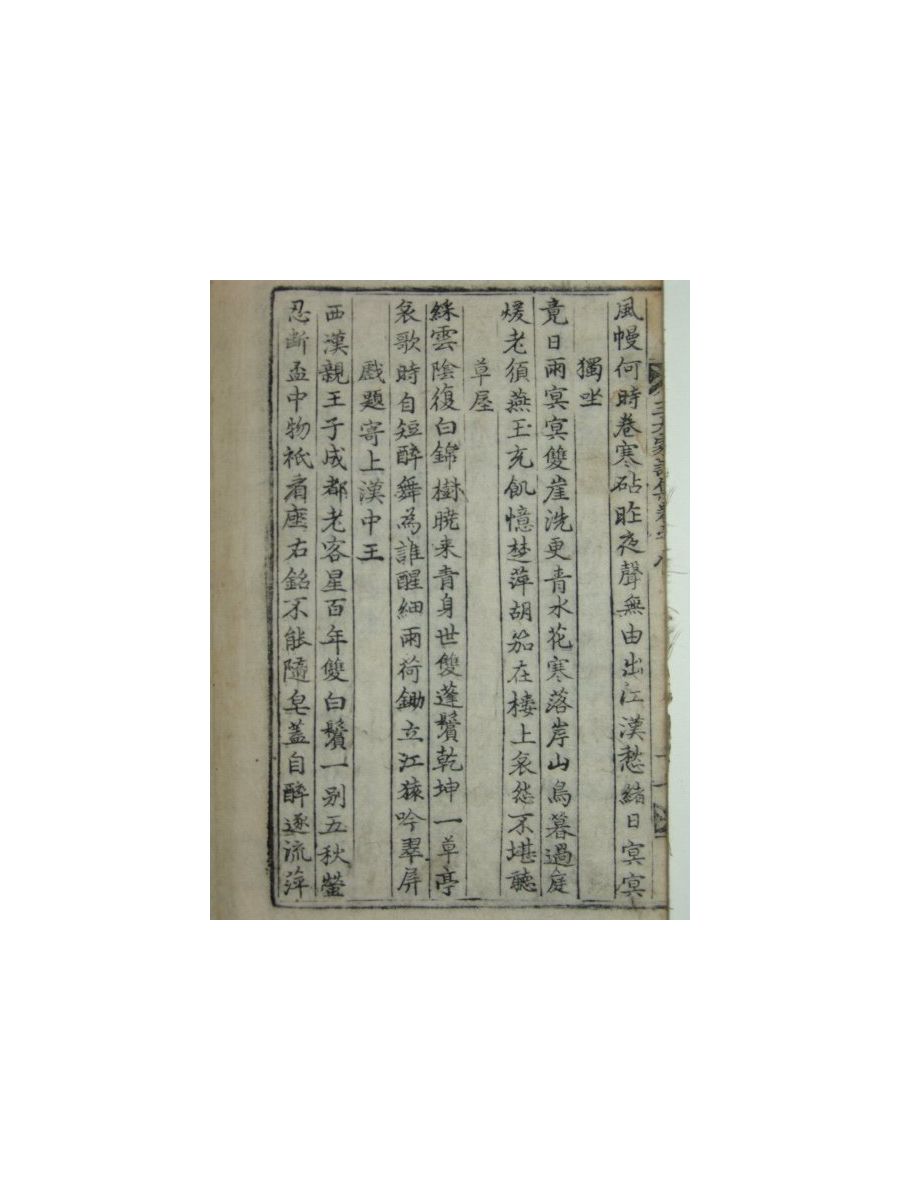 風幔何時卷寒砧昨夜聲無由出江漢愁緒日冥冥
獨坐
竟日雨冥冥雙崖洗更青水花寒落岸山鳥暮過庭
煖老須燕玉充飢憶楚萍胡笳在樓上哀怨不堪聽
草屋
綵雲陰復白錦樹曉来青身世雙蓬鬢乾坤一草亭
哀歌時自短醉舞為誰醒細雨荷鋤立江猿吟翠屏
戲題寄上漢中王
西漢親王子成都老客星百年雙白鬢一别五秋螢
忍断盃中物祇看座右銘不能隨皂蓋自醉逐流萍